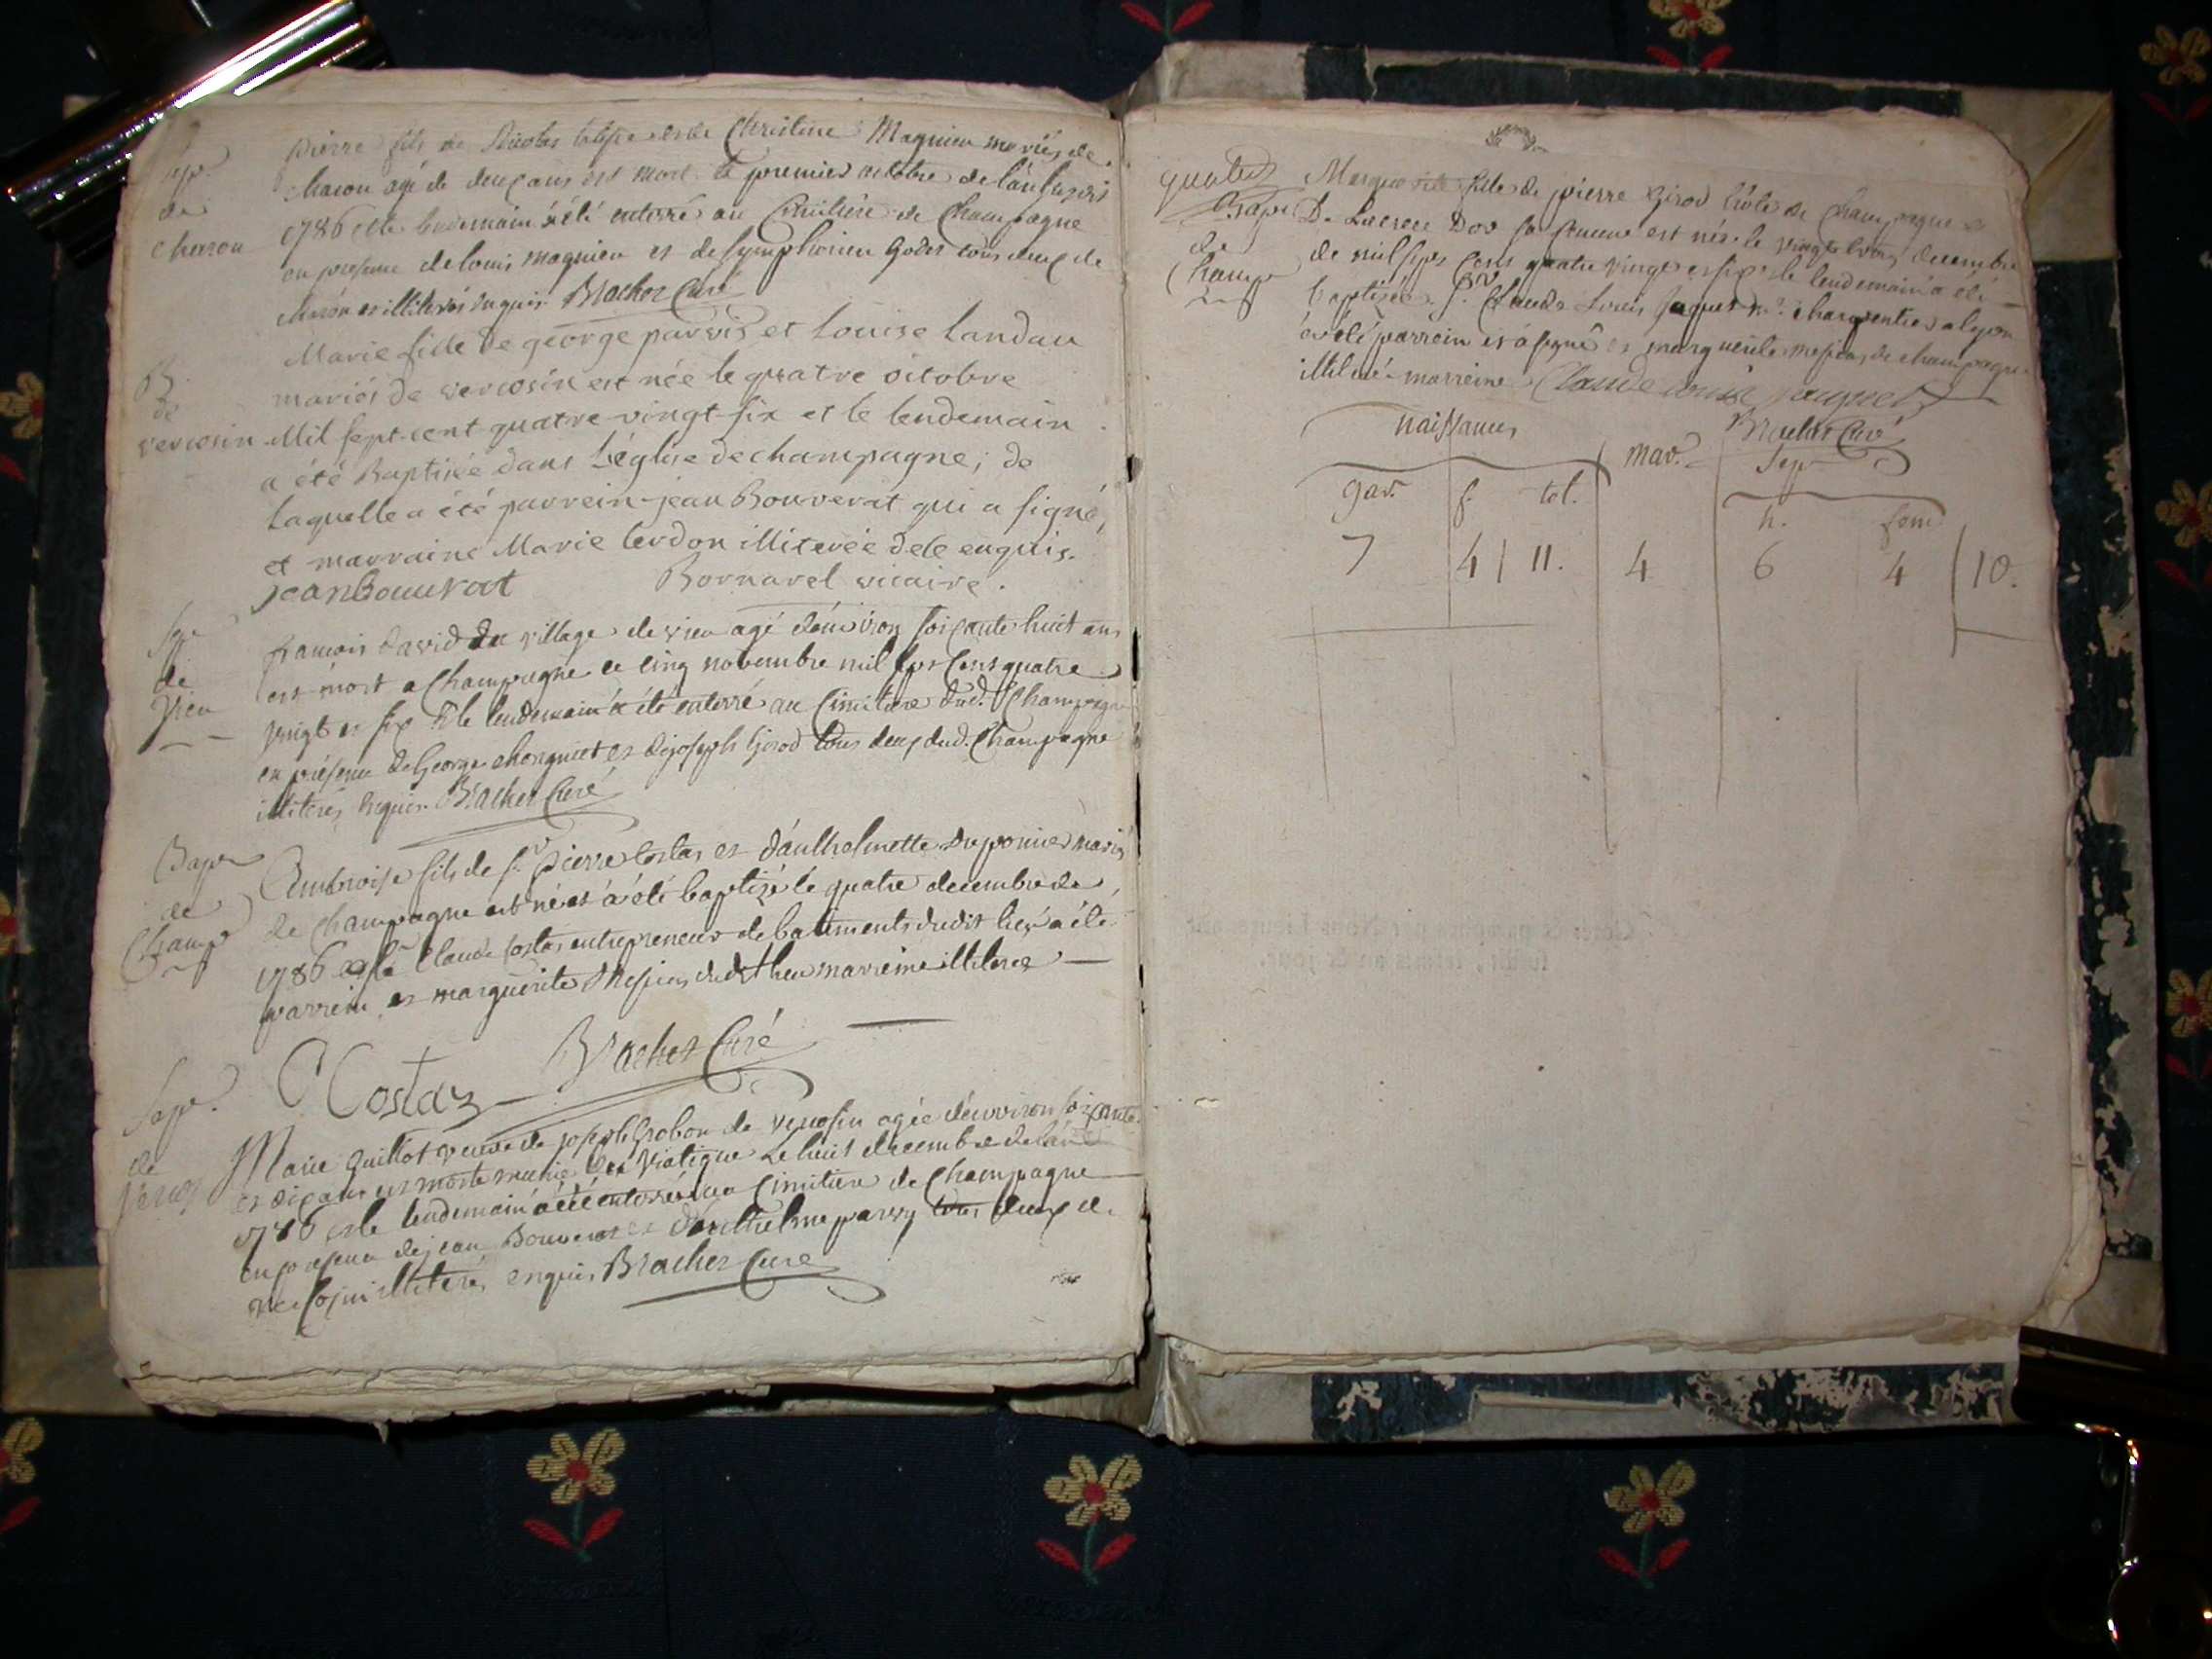 Sep.
de
charon
pierre fils de Nicolas et de Christine Magnien mariés de
charon agé de deux ans est mort le premier octobre de l'an
1786 et le lendemain a été enterré au Cimitiere de Champagne
en presence de louis magnien et de symphorien Godet tous deux de
charon illiterés enquis Brachet Curé
B.
de
verossin
Marie fille de george parvis et Louise Landau
mariés de verossin est née le quatre octobre
Mil sept cent quatre vingt six et le lendemain
a été Baptisée dans L'église de champagne; de
Laquelle a été parrein jean Bouverat qui a signé,
et marraine Marie lerdon illiterée de ce enquis.
jean Bouverat Bornarel vicaire.
Sep
de
Vieu
francois david du village de vieu agé d'environ soixante huit ans
est mort a Champagne le cinq novembre mil sept Cent quatre
vingt et six et le lendemain a été enterré au Cimitiere dud. Champagne
en présence de George et de joseph Girod tous deux dud. Champagne
illiterés enquis. Brachet Curé
Bap
de
Champ
Ambroise fils de sr. pierre Costaz et d'anthelmette Duponier mariés
de Champagne est né et a été baptizé le quatre decembre de
1786 Claude Costaz entrepreneur de batiments dudit lieu a été
parrein et marguerite dudt lieu marreine illiterée
C Costaz Brachet Curé
Sep.
de
Maríe Guillot veuve de joseph Grobon de verossin agée d'environ soixante
et dix ans est morte munie du Viatique Le huit decembre de l'an
1786 et le lendemain a été enterrée au Cimitiere de Champagne
en presence de jean Bouverat et d'anthelme parvy tous deux de
illiterés enquis Brachet Curé
Bap
de
Champ
Marguerite fille de pierre Girod de Champagne
De sa femme est née le vingt trois decembre
de mil sept Cent quatre vingt et six et le lendemain a été
baptizée. sr. Claude Louis jaquet me. charpentier a lyon
a été parrein et a signé et marguerite de champagne
illiterée marreine Claude Louis jaquet
Brachet Curé
naissances
mar.
Sep
gar. f. tol.
h. fem
7 4 11. 4 6 4 10.